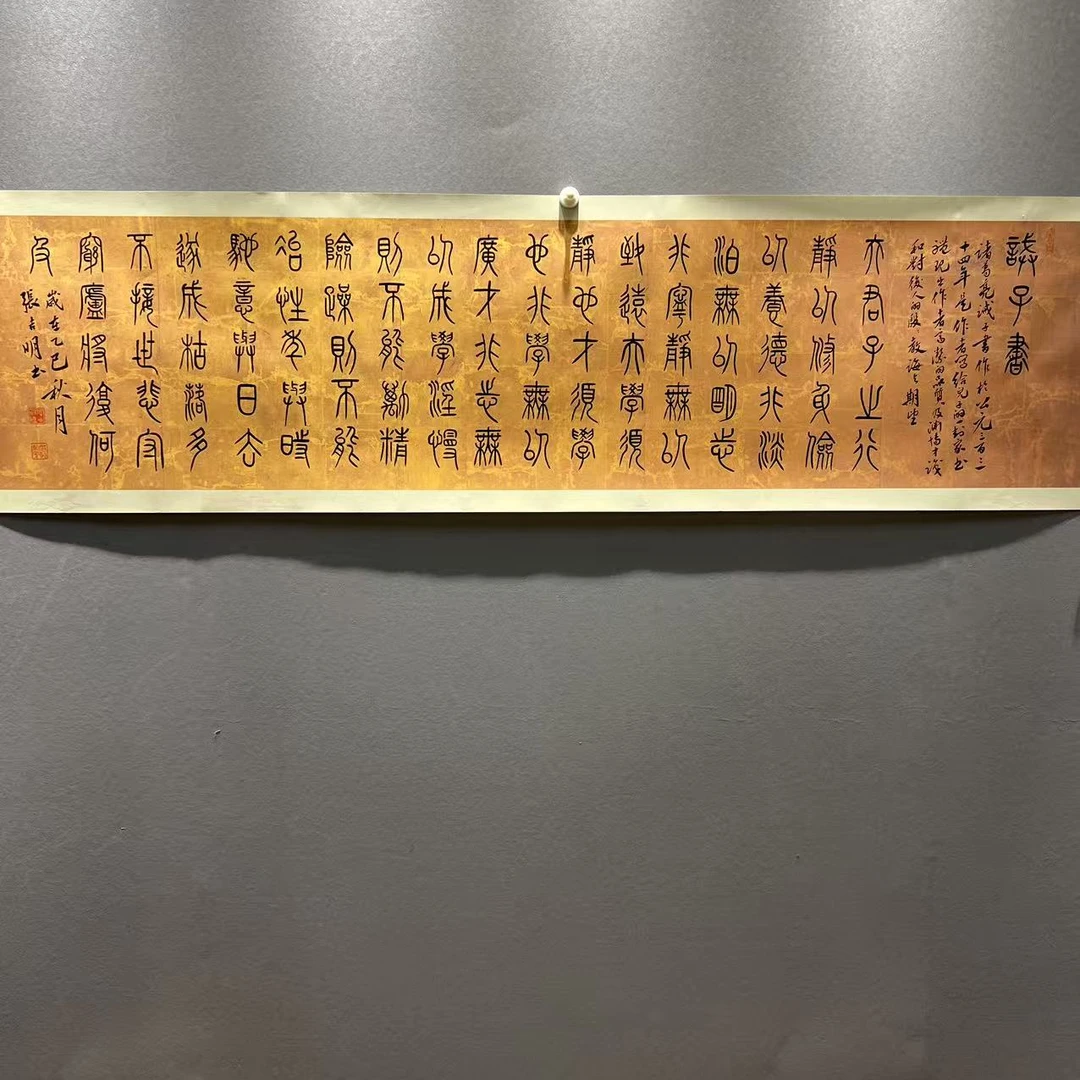 誡子書
諸葛亮誡子書作於公元二百三
十四年是作者寫給兒子的一封家书
體現出作者高潔的品質及博才識
和對後人的殷教誨期望
夫君子之行
靜以修身儉
以養德非淡
泊無以明志
非寧靜無以
致遠夫學須
靜也才須學
也非學無以
廣才非志無
以成學淫慢
則不能勵精
險躁則不能
冶性年與時
馳意與日去
遂成枯落多
不接世悲守
窮廬將復何
及
歲在乙巳秋月
張明书